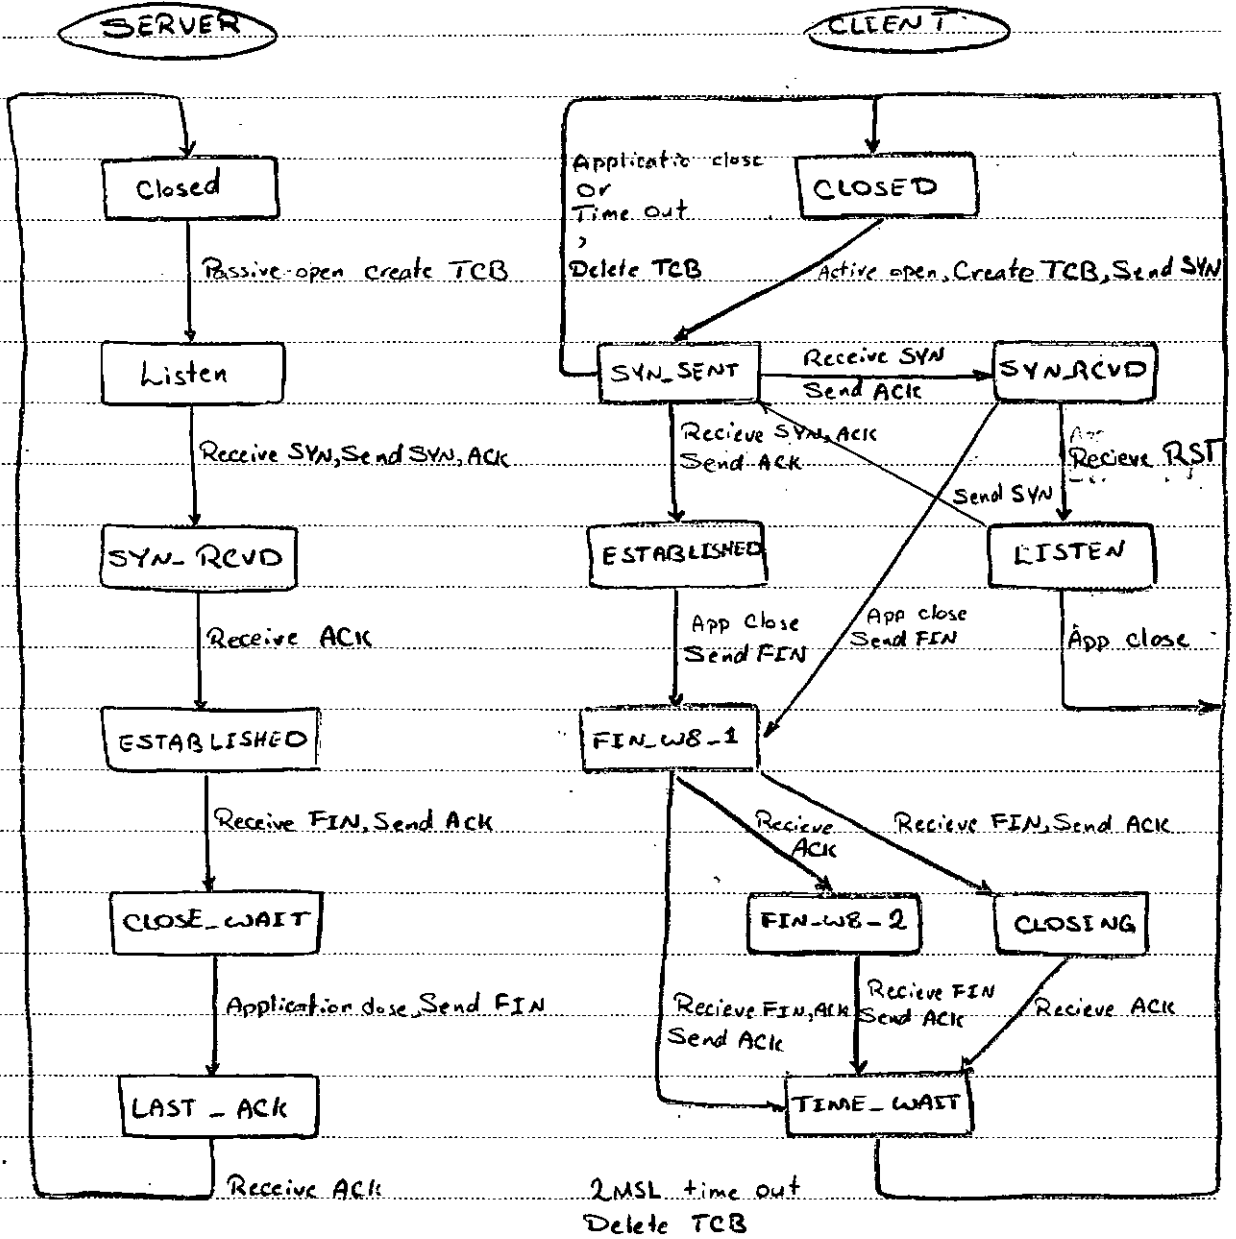 SERVER
Closed
Passive open create TCB
Listen
Receive SYN, Send SYN, ACK
SYN_RCVD
Receive ACK
ESTABLISHED
Receive FIN, Send ACK
CLOSE_WAIT
Application close, Send FIN
LAST_ACK
Receive ACK
CLIENT
CLOSED
Applicatio close
Or
Time out
,
Delete TCB
Active open, Create TCB, Send SYN
SYN_SENT
Receive SYN
Send ACK
SYN_RCVD
Recieve SYN, ACK
Send ACK
Recieve RST
Send SYN
ESTABLISHED
LISTEN
App Close
Send FIN
App close
Send FIN
App close
FIN_W8_1
Recieve
ACK
Recieve FIN, Send ACK
FIN_W8_2
CLOSING
Recieve FIN, ACK
Send ACK
Recieve FIN
Send ACK
Recieve ACK
TIME_WAIT
2MSL time out
Delete TCB